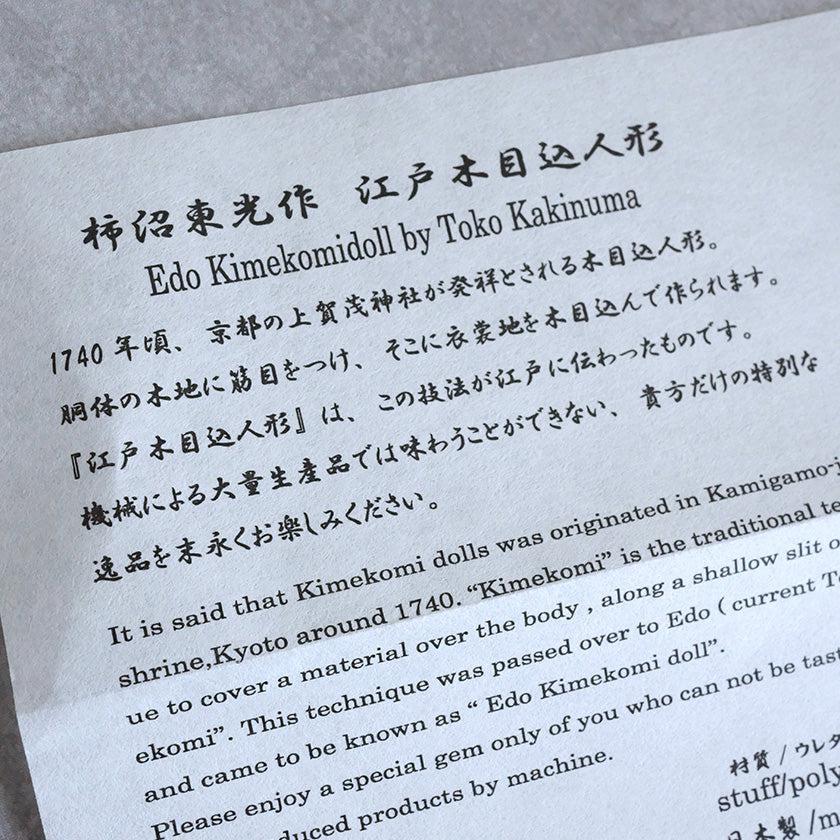 柿沼東光作 江戸木目込人形
Edo Kimekomidoll by Toko Kakinuma
1740年頃、京都の上賀茂神社が発祥とされる木目込人形。
胴体の木地に筋目をつけ、そこに衣裳地を木目込んで作られます。
『江戸木目込人形』は、この技法が江戸に伝わったものです。
機械による大量生産品では味わうことができない、貴方だけの特別な
逸品を末永くお楽しみください。
It is said that Kimekomi dolls was originated in Kamigamo-j
shrine,Kyoto around 1740. “Kimekomi” is the traditional te
ue to cover a material over the body , along a shallow slit o
ekomi”. This technique was passed over to Edo ( current T
and came to be known as “ Edo Kimekomi doll”.
Please enjoy a special gem only of you who can not be tast
duced products by machine.
材質 / ウレタ
stuff/poly
日本製 /m